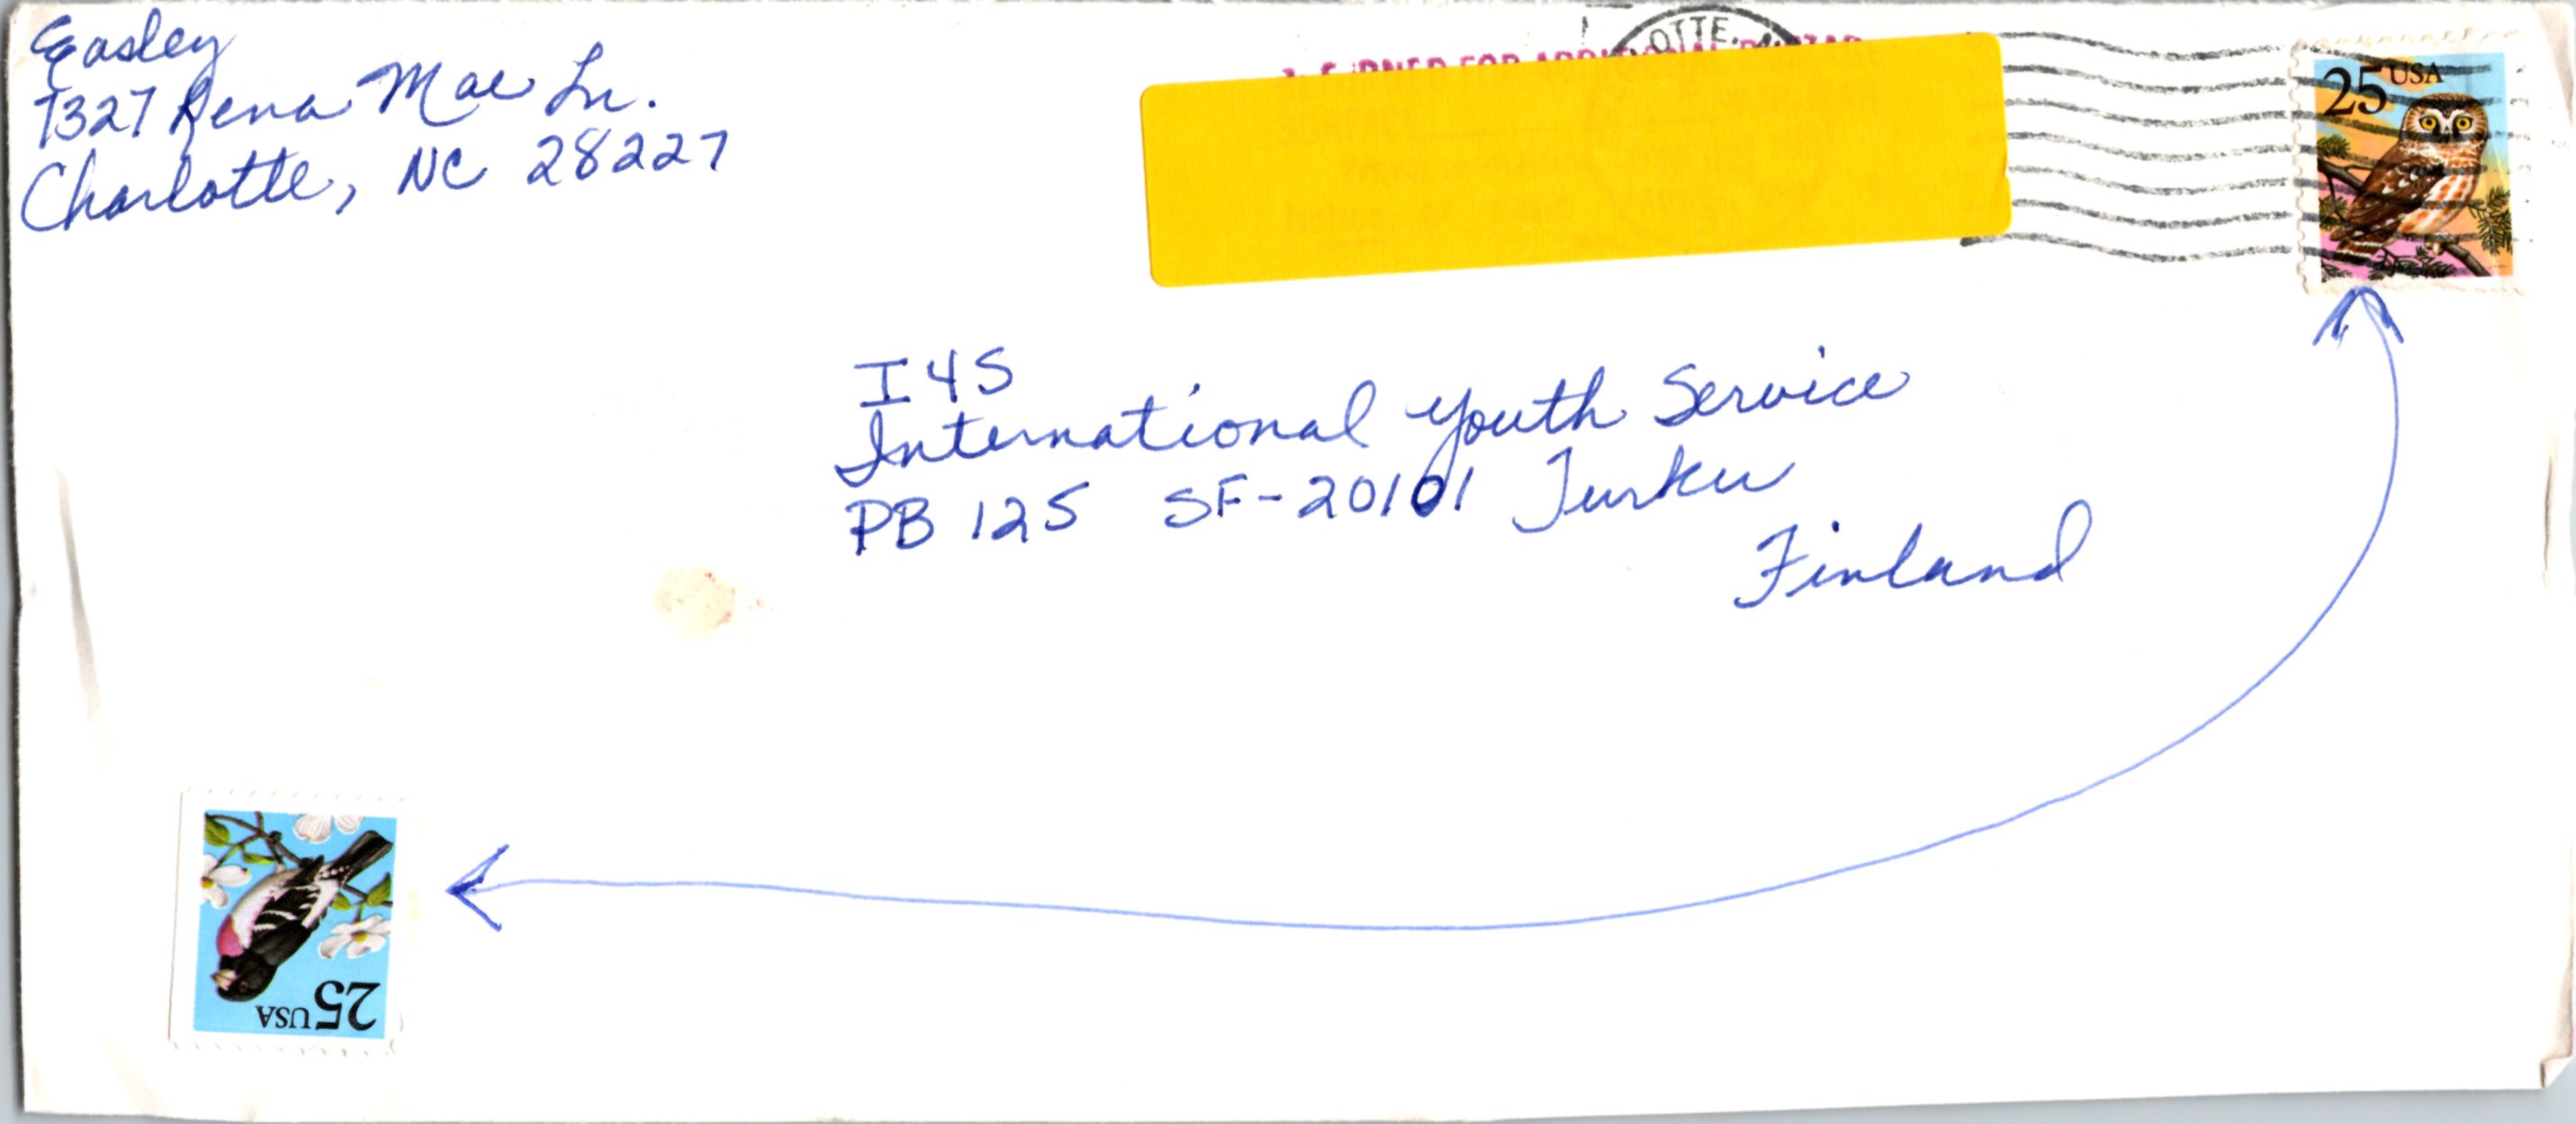 Easley
7327 Rena Mae Ln.
Charlotte, NC 28227
OTTE, N
FOR ADDITIONAL POSTAG
25 USA
IYS
International Youth Service
PB 125 SF-20101 Turku
Finland
25 USA